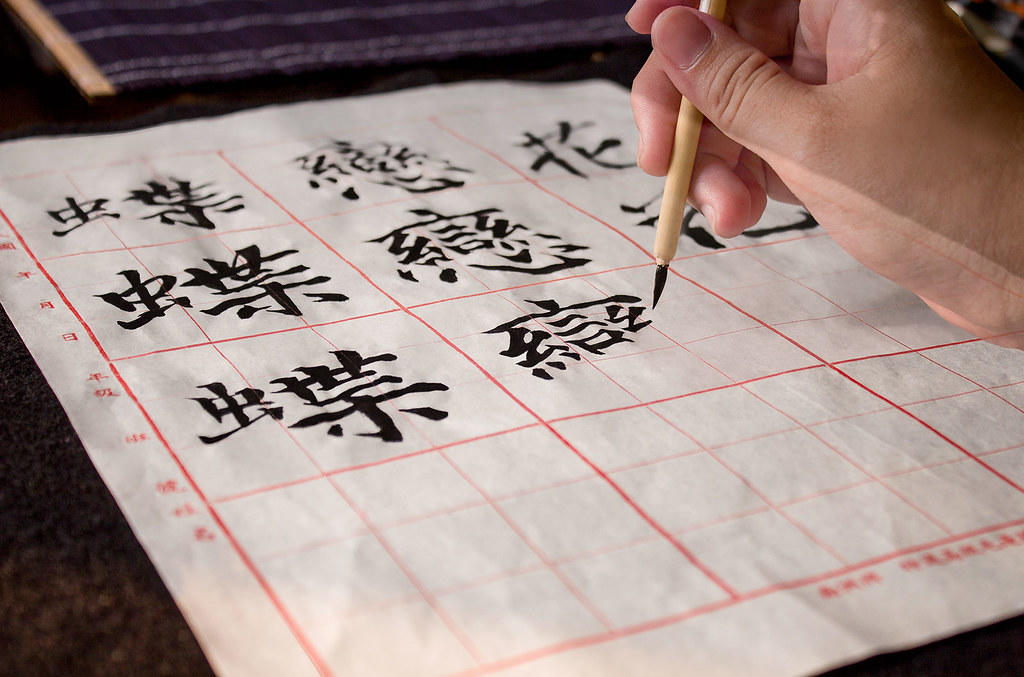 蝶戀花
蝶戀花
蝶
年月日 年級 班 號 姓名